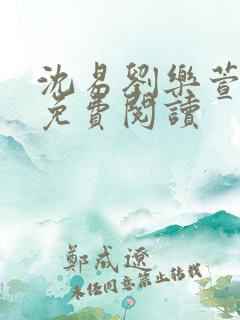 沈易劉樂萱
免費閱讀
鄭成遼
未经同意禁止转载